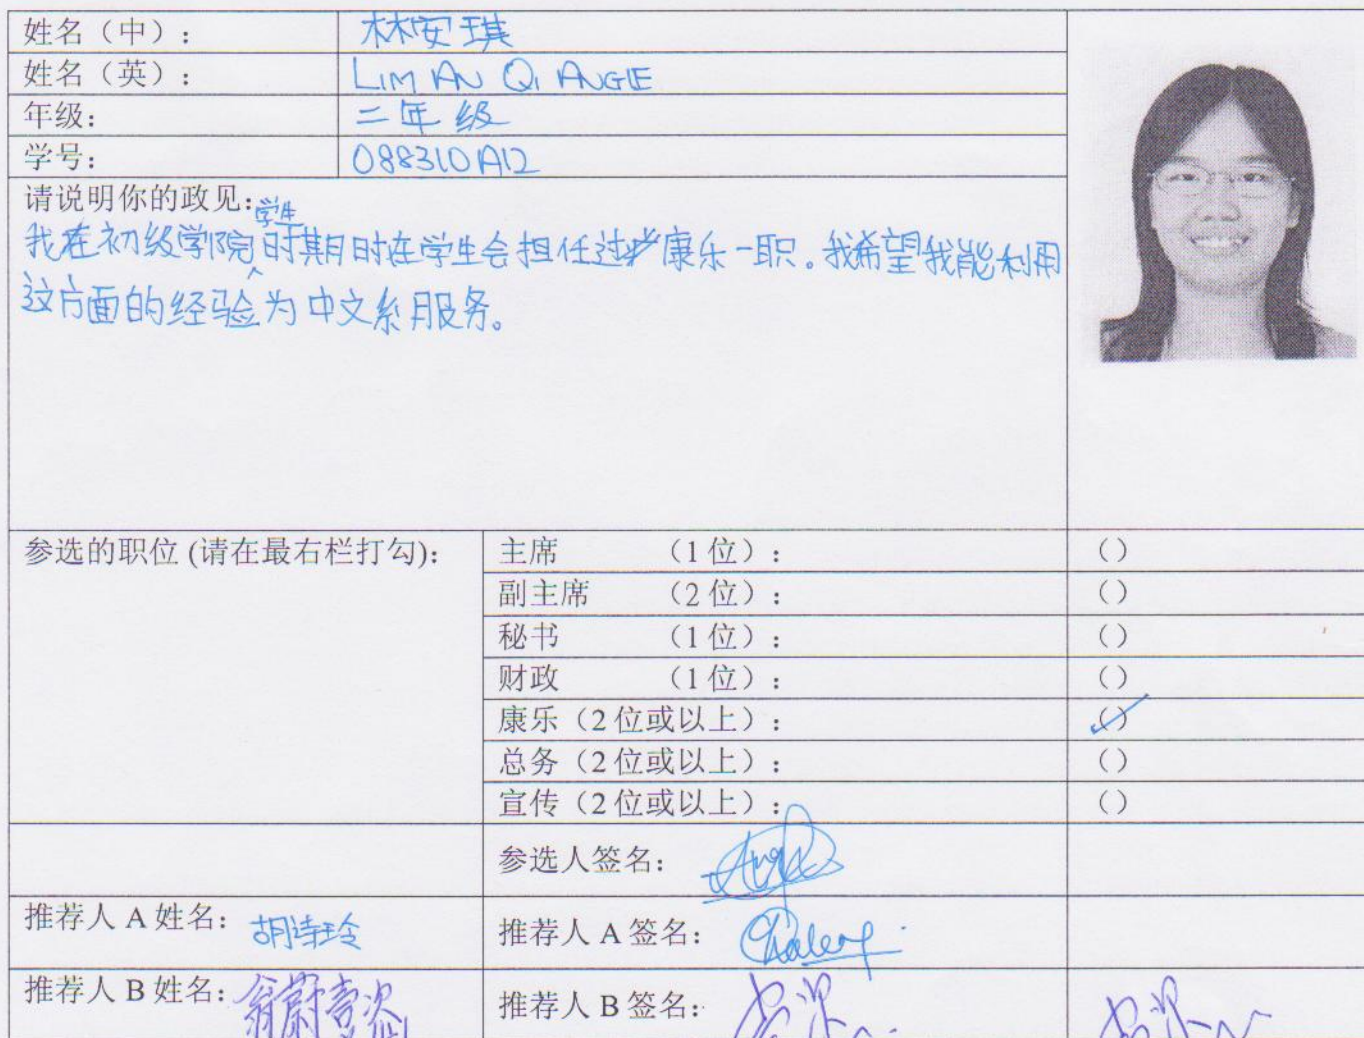 姓名（中）： 林安琪
姓名（英）： LIM AN QI ANGIE
年级： 二年级
学号： 088310A12
请说明你的政见：
学生
我在初级学院时期时在学生会担任过康乐一职。我希望我能利用
这方面的经验为中文系服务。
参选的职位 (请在最右栏打勾)： 主席 （1 位）： （）
副主席 （2 位）： （）
秘书 （1 位）： （）
财政 （1 位）： （）
康乐（2 位或以上）： （✓）
总务（2 位或以上）： （）
宣传（2 位或以上）： （）
参选人签名：
推荐人 A 姓名： 胡诗玲 推荐人 A 签名：
推荐人 B 姓名： 推荐人 B 签名：